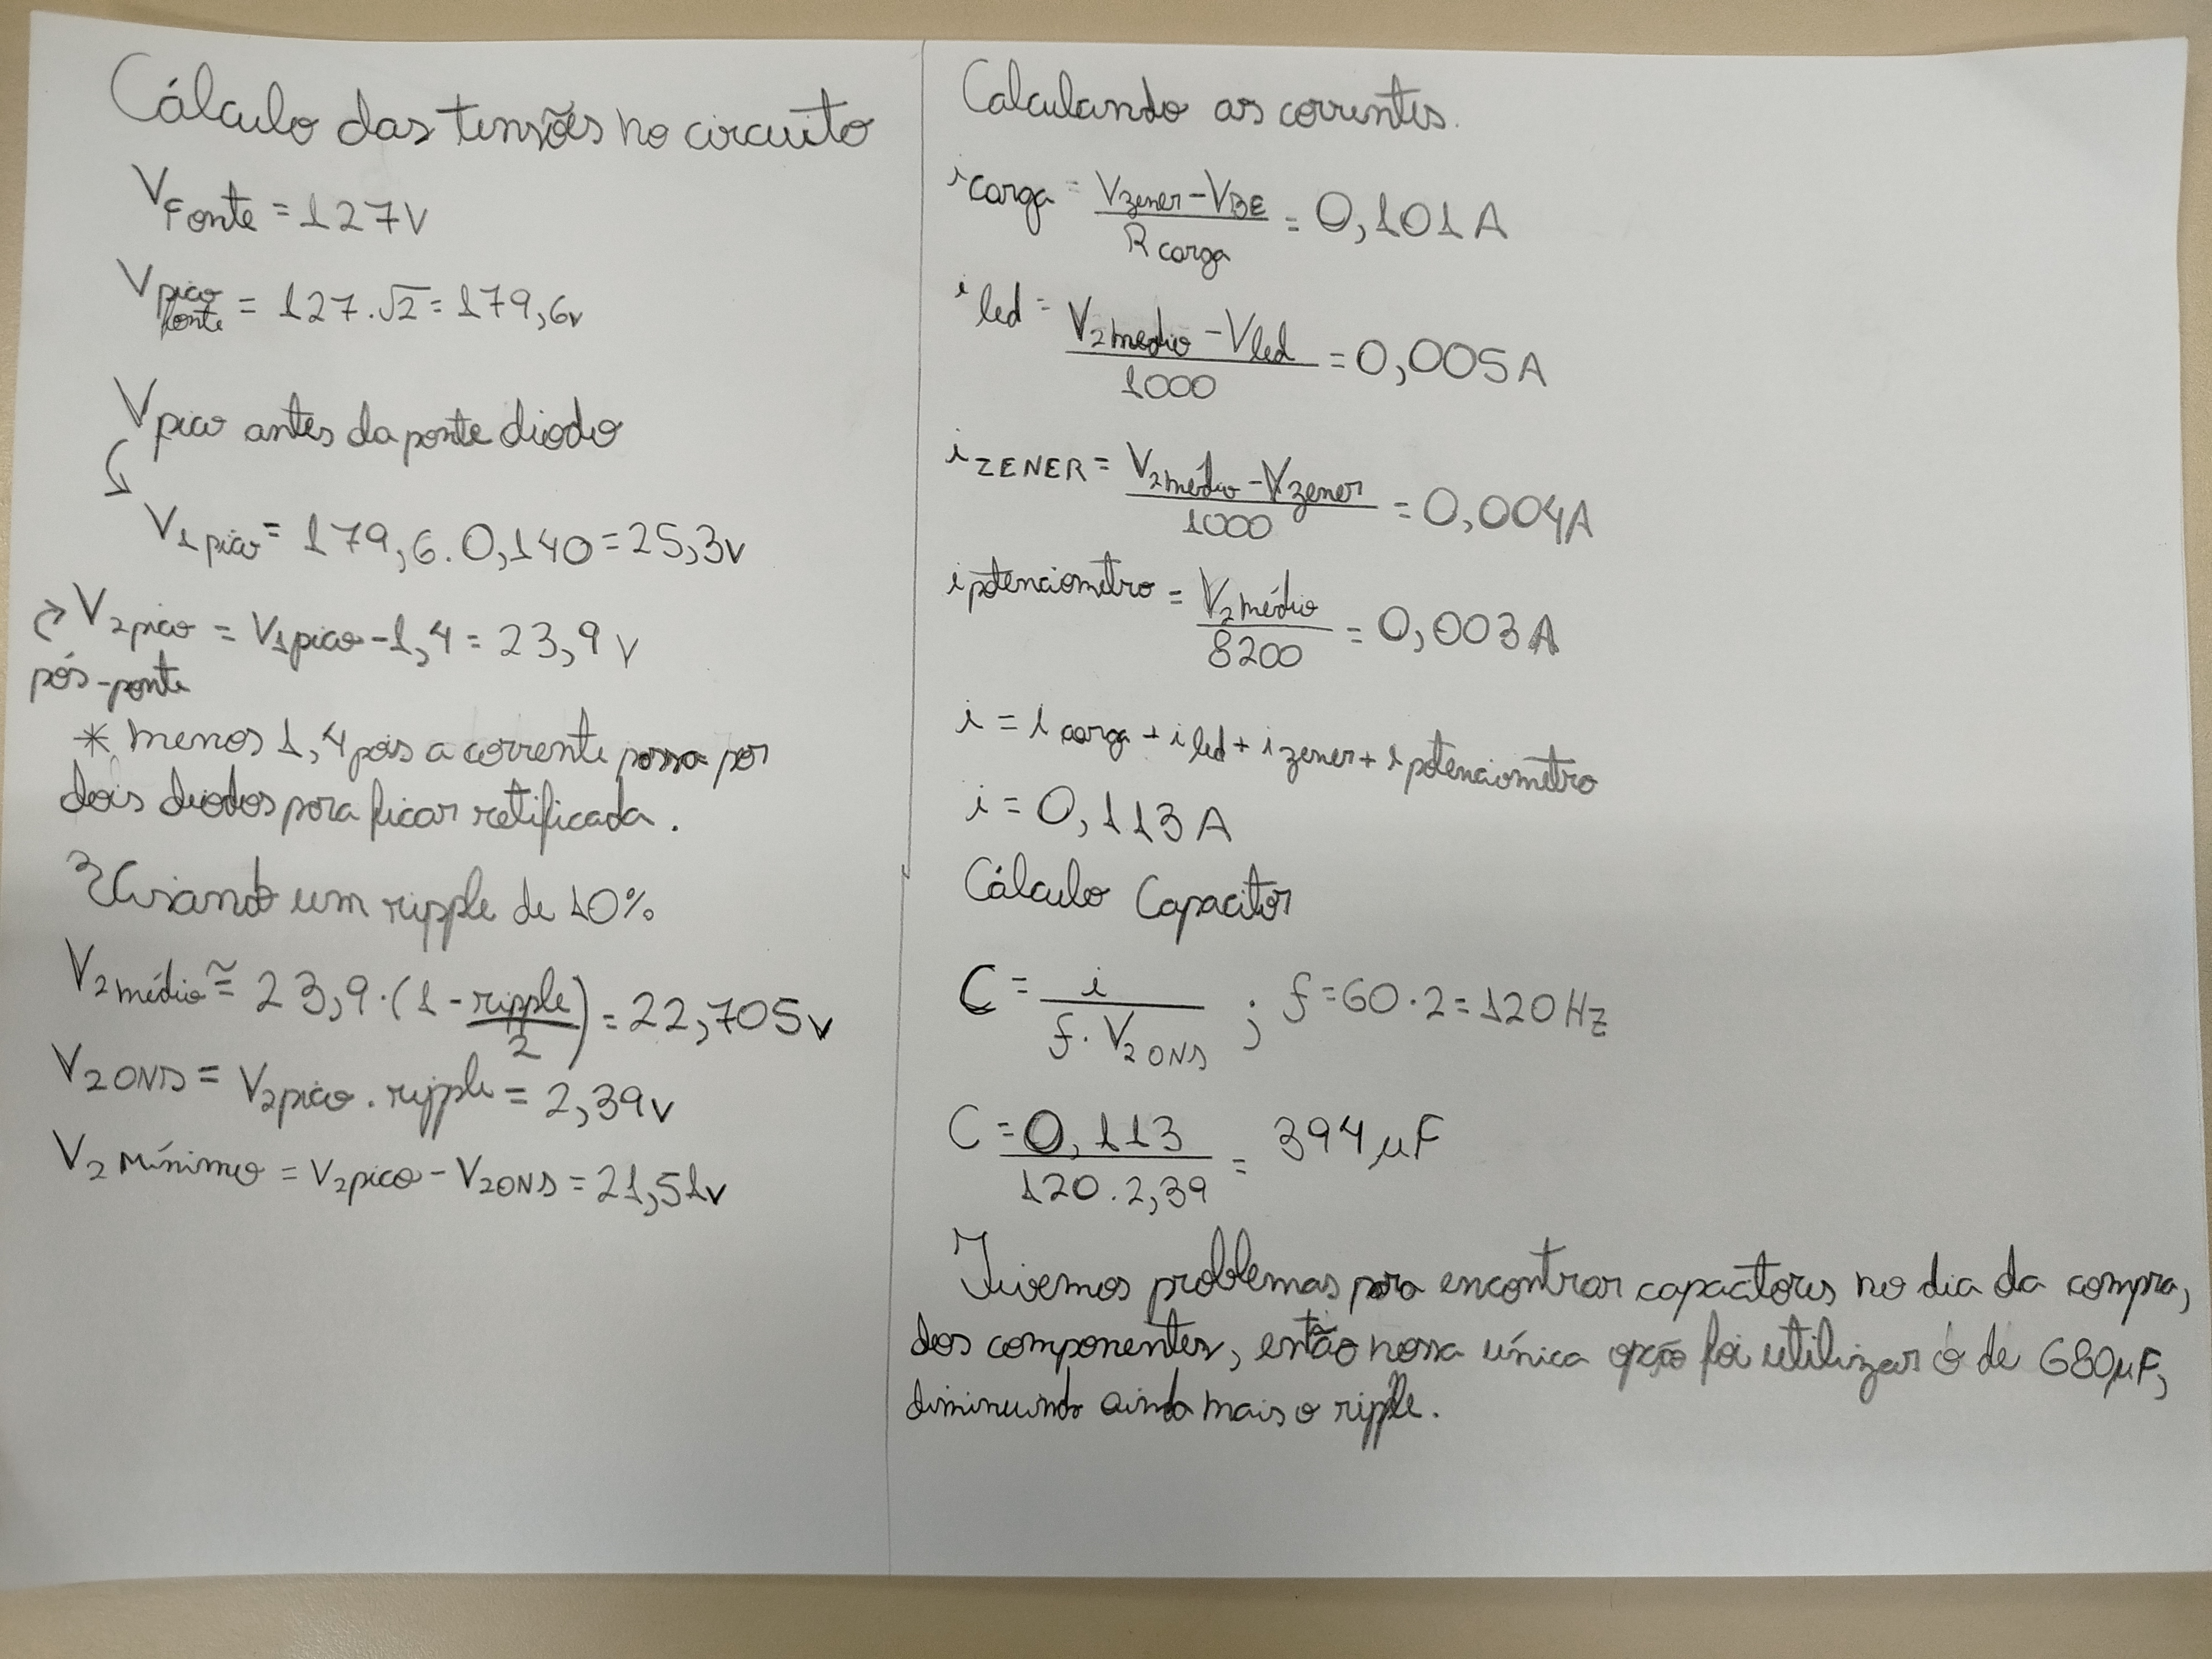 Cálculo das tensões no circuito
V Fonte = 127V
V pico fonte = 127.√2 = 179,6v
Vpico antes da ponte diodo
V1pico = 179,6.0,140 = 25,3v
V2pico = V1pico - 1,4 = 23,9 v
pós-ponte
* menos 1,4 pois a corrente passa por
dois diodos para ficar retificada.
Usando um ripple de 10%
V2médio ≅ 23,9.(1 - ripple/2) = 22,705v
V2ONS = V2pico . ripple = 2,39v
V2 Mínimo = V2pico - V2ONS = 21,51v
Calculando as correntes.
i carga = Vzener - VBE / R carga = 0,101A
i led = V2medio - Vled / 1000 = 0,005A
i ZENER = V2médio - Vzener / 1000 = 0,004A
i potenciometro = V2médio / 8200 = 0,003A
i = i carga + i led + i zener + i potenciometro
i = 0,113A
Cálculo Capacitor
C = i / f. V2 ONS ; f = 60.2 = 120Hz
C = 0,113 / 120.2,39 = 394 µF
Tivemos problemas para encontrar capacitores no dia da compra,
dos componentes, então nossa única opção foi utilizar o de 680µF,
diminuindo ainda mais o ripple.